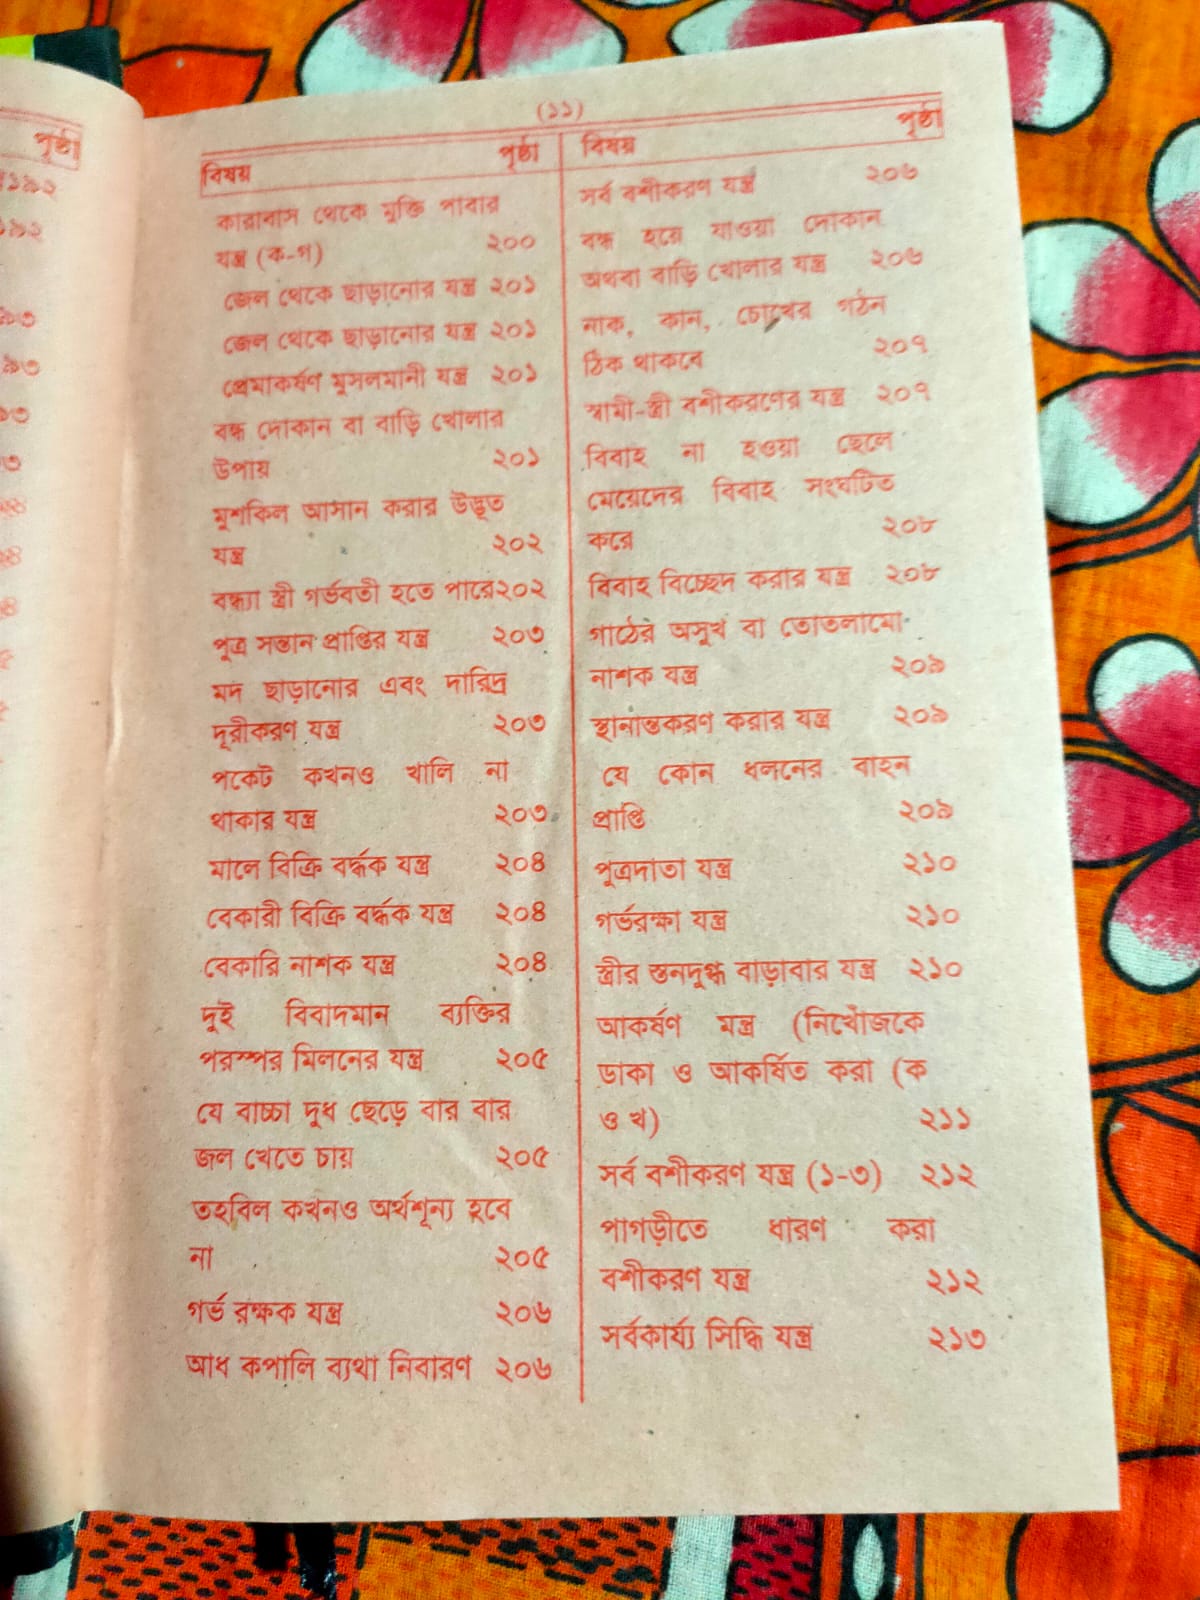 পৃষ্ঠা
(১১)
বিষয় পৃষ্ঠা
কারাবাস থেকে মুক্তি পাবার
যন্ত্র (ক-গ) ২০০
জেল থেকে ছাড়ানোর যন্ত্র ২০১
জেল থেকে ছাড়ানোর যন্ত্র ২০১
প্রেমাকর্ষণ মুসলমানী যন্ত্র ২০১
বন্ধ দোকান বা বাড়ি খোলার
উপায় ২০১
মুশকিল আসান করার উদ্ভূত
যন্ত্র ২০২
বন্ধ্যা স্ত্রী গর্ভবতী হতে পারে২০২
পুত্র সন্তান প্রাপ্তির যন্ত্র ২০৩
মদ ছাড়ানোর এবং দারিদ্র
দূরীকরণ যন্ত্র ২০৩
পকেট কখনও খালি না
থাকার যন্ত্র ২০৩
মালে বিক্রি বর্দ্ধক যন্ত্র ২০৪
বেকারী বিক্রি বর্দ্ধক যন্ত্র ২০৪
বেকারি নাশক যন্ত্র ২০৪
দুই বিবাদমান ব্যক্তির
পরস্পর মিলনের যন্ত্র ২০৫
যে বাচ্চা দুধ ছেড়ে বার বার
জল খেতে চায় ২০৫
তহবিল কখনও অর্থশূন্য হবে
না ২০৫
গর্ভ রক্ষক যন্ত্র ২০৬
আধ কপালি ব্যথা নিবারণ ২০৬
বিষয় পৃষ্ঠা
সর্ব বশীকরণ যন্ত্র ২০৬
বন্ধ হয়ে যাওয়া দোকান
অথবা বাড়ি খোলার যন্ত্র ২০৬
নাক, কান, চোখের গঠন
ঠিক থাকবে ২০৭
স্বামী-স্ত্রী বশীকরণের যন্ত্র ২০৭
বিবাহ না হওয়া ছেলে
মেয়েদের বিবাহ সংঘটিত
করে ২০৮
বিবাহ বিচ্ছেদ করার যন্ত্র ২০৮
গাঠের অসুখ বা তোতলামো
নাশক যন্ত্র ২০৯
স্থানান্তকরণ করার যন্ত্র ২০৯
যে কোন ধলনের বাহন
প্রাপ্তি ২০৯
পুত্রদাতা যন্ত্র ২১০
গর্ভরক্ষা যন্ত্র ২১০
স্ত্রীর স্তনদুগ্ধ বাড়াবার যন্ত্র ২১০
আকর্ষণ মন্ত্র (নিখোঁজকে
ডাকা ও আকর্ষিত করা (ক
ও খ) ২১১
সর্ব বশীকরণ যন্ত্র (১-৩) ২১২
পাগড়ীতে ধারণ করা
বশীকরণ যন্ত্র ২১২
সর্বকার্য্য সিদ্ধি যন্ত্র ২১৩